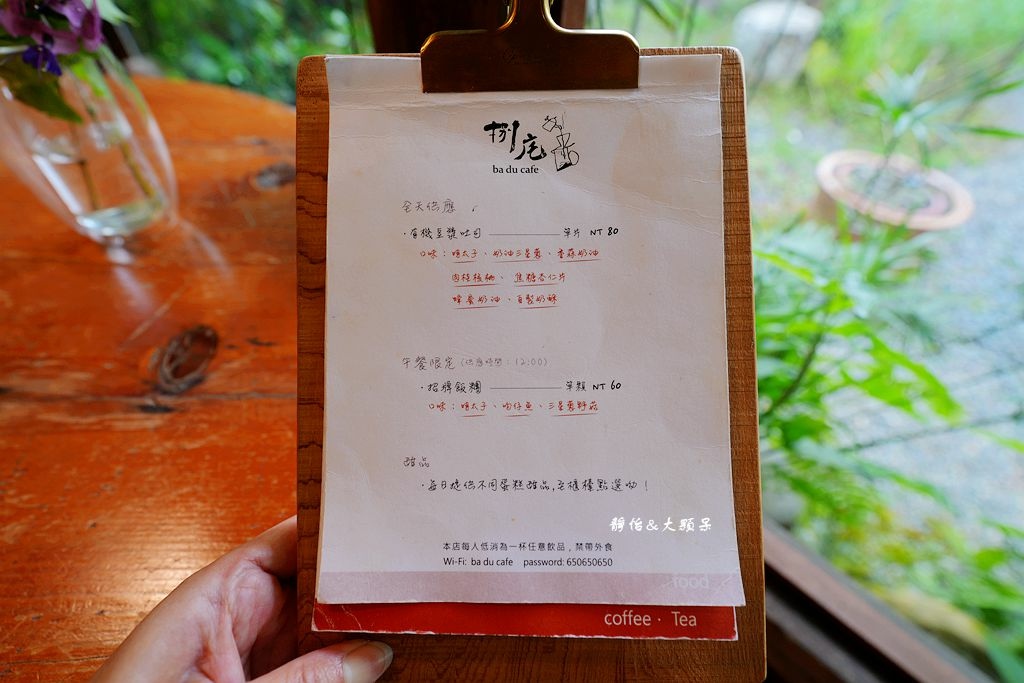 捌庑
ba du cafe
全天供應
・有機豆漿吐司 ———— 單片 NT 80
口味：明太子、奶油三星蔥、香蒜奶油
肉桂核桃、焦糖杏仁片
蜂蜜奶油、自製奶酥
午餐限定 (供應時間：12:00)
・招牌飯糰 ———— 單顆 NT 60
口味：明太子、吻仔魚、三星蔥野菇
甜品
・每日提供不同蛋糕甜品,至櫃檯點選呦！
靜怡&大顆呆
本店每人低消為一杯任意飲品，禁帶外食
Wi-Fi: ba du cafe password: 650650650
food
coffee · Tea